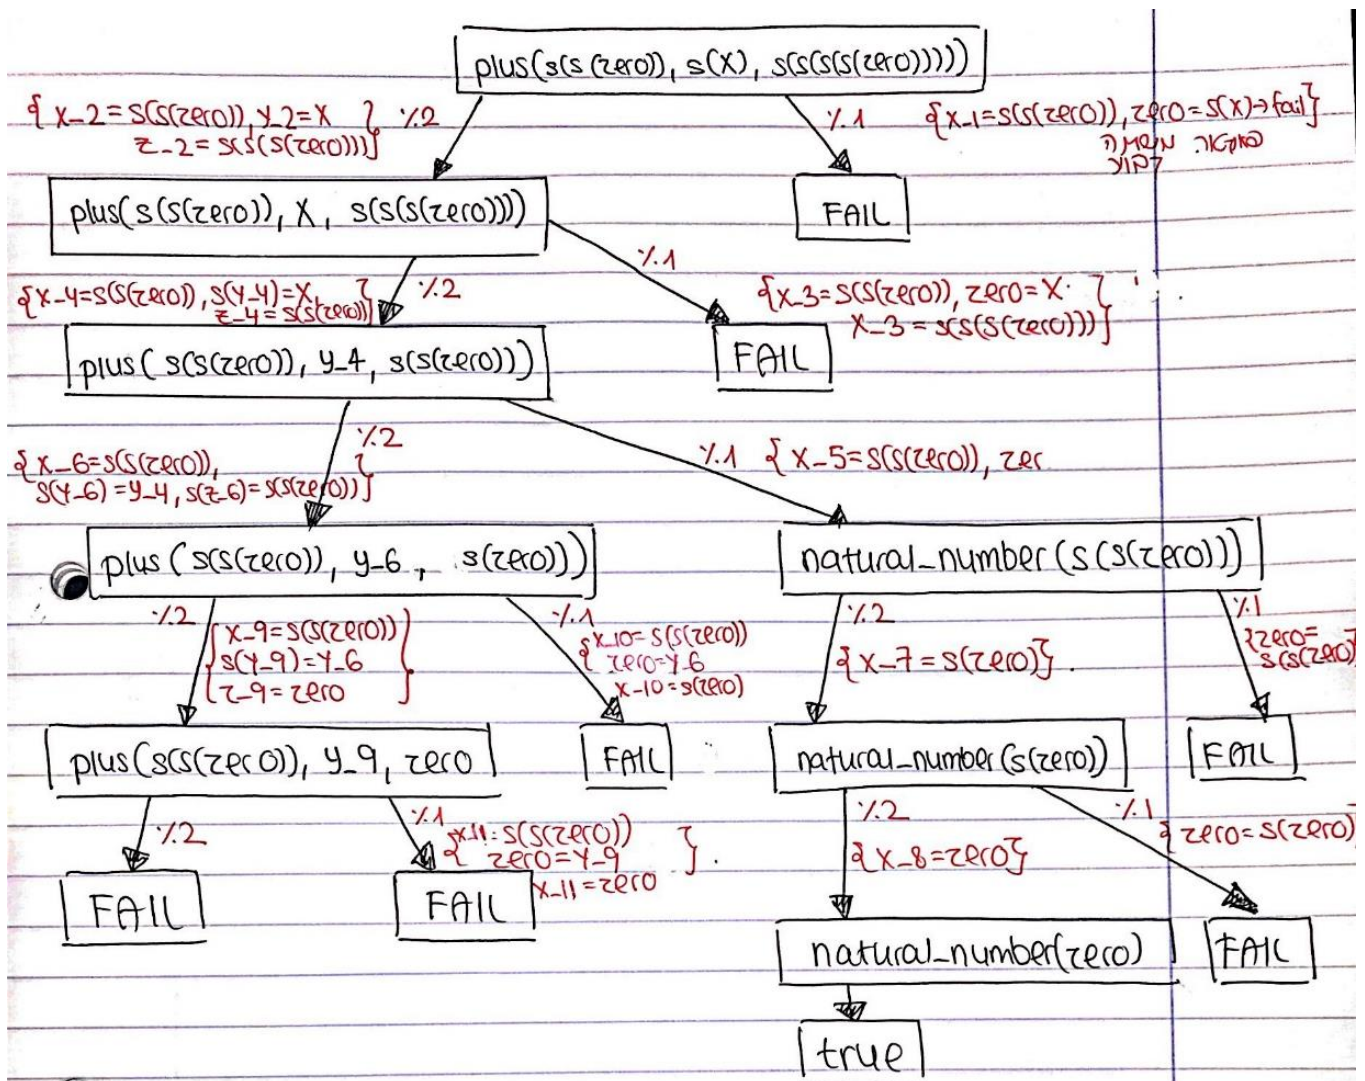 plus(s(s(zero)), s(X), s(s(s(s(zero)))))
{X_2=s(s(zero)), y_2=X
z_2=s(s(s(zero)))}
%2
%1
{X_1=s(s(zero)), zero=s(X)→fail}
plus(s(s(zero)), X, s(s(s(zero))))
FAIL
{X_4=s(s(zero)), s(y_4)=X,
z_4=s(s(zero))}
%2
%1
{X_3=s(s(zero)), zero=X
X_3=s(s(s(zero)))}
plus(s(s(zero)), y_4, s(s(zero)))
FAIL
{X_6=s(s(zero)),
s(y_6)=y_4, s(z_6)=s(s(zero))}
%2
%1 {X_5=s(s(zero)), zer
plus(s(s(zero)), y_6, s(zero)))
natural_number(s(s(zero)))
%2
{X_9=s(s(zero))
s(y_9)=y_6
z_9=zero}
%1
{X_10=s(s(zero))
zero=y_6
X_10=s(zero)
%2
{X_7=s(zero)}.
%1
{zero=
s(s(zero)
plus(s(s(zero)), y_9, zero
FAIL
natural_number(s(zero))
FAIL
%2
%1
{X_11=s(s(zero))
zero=y_9
X_11=zero}.
%2
{X_8=zero}
%1
{zero=s(zero)
FAIL
FAIL
natural_number(zero)
FAIL
true